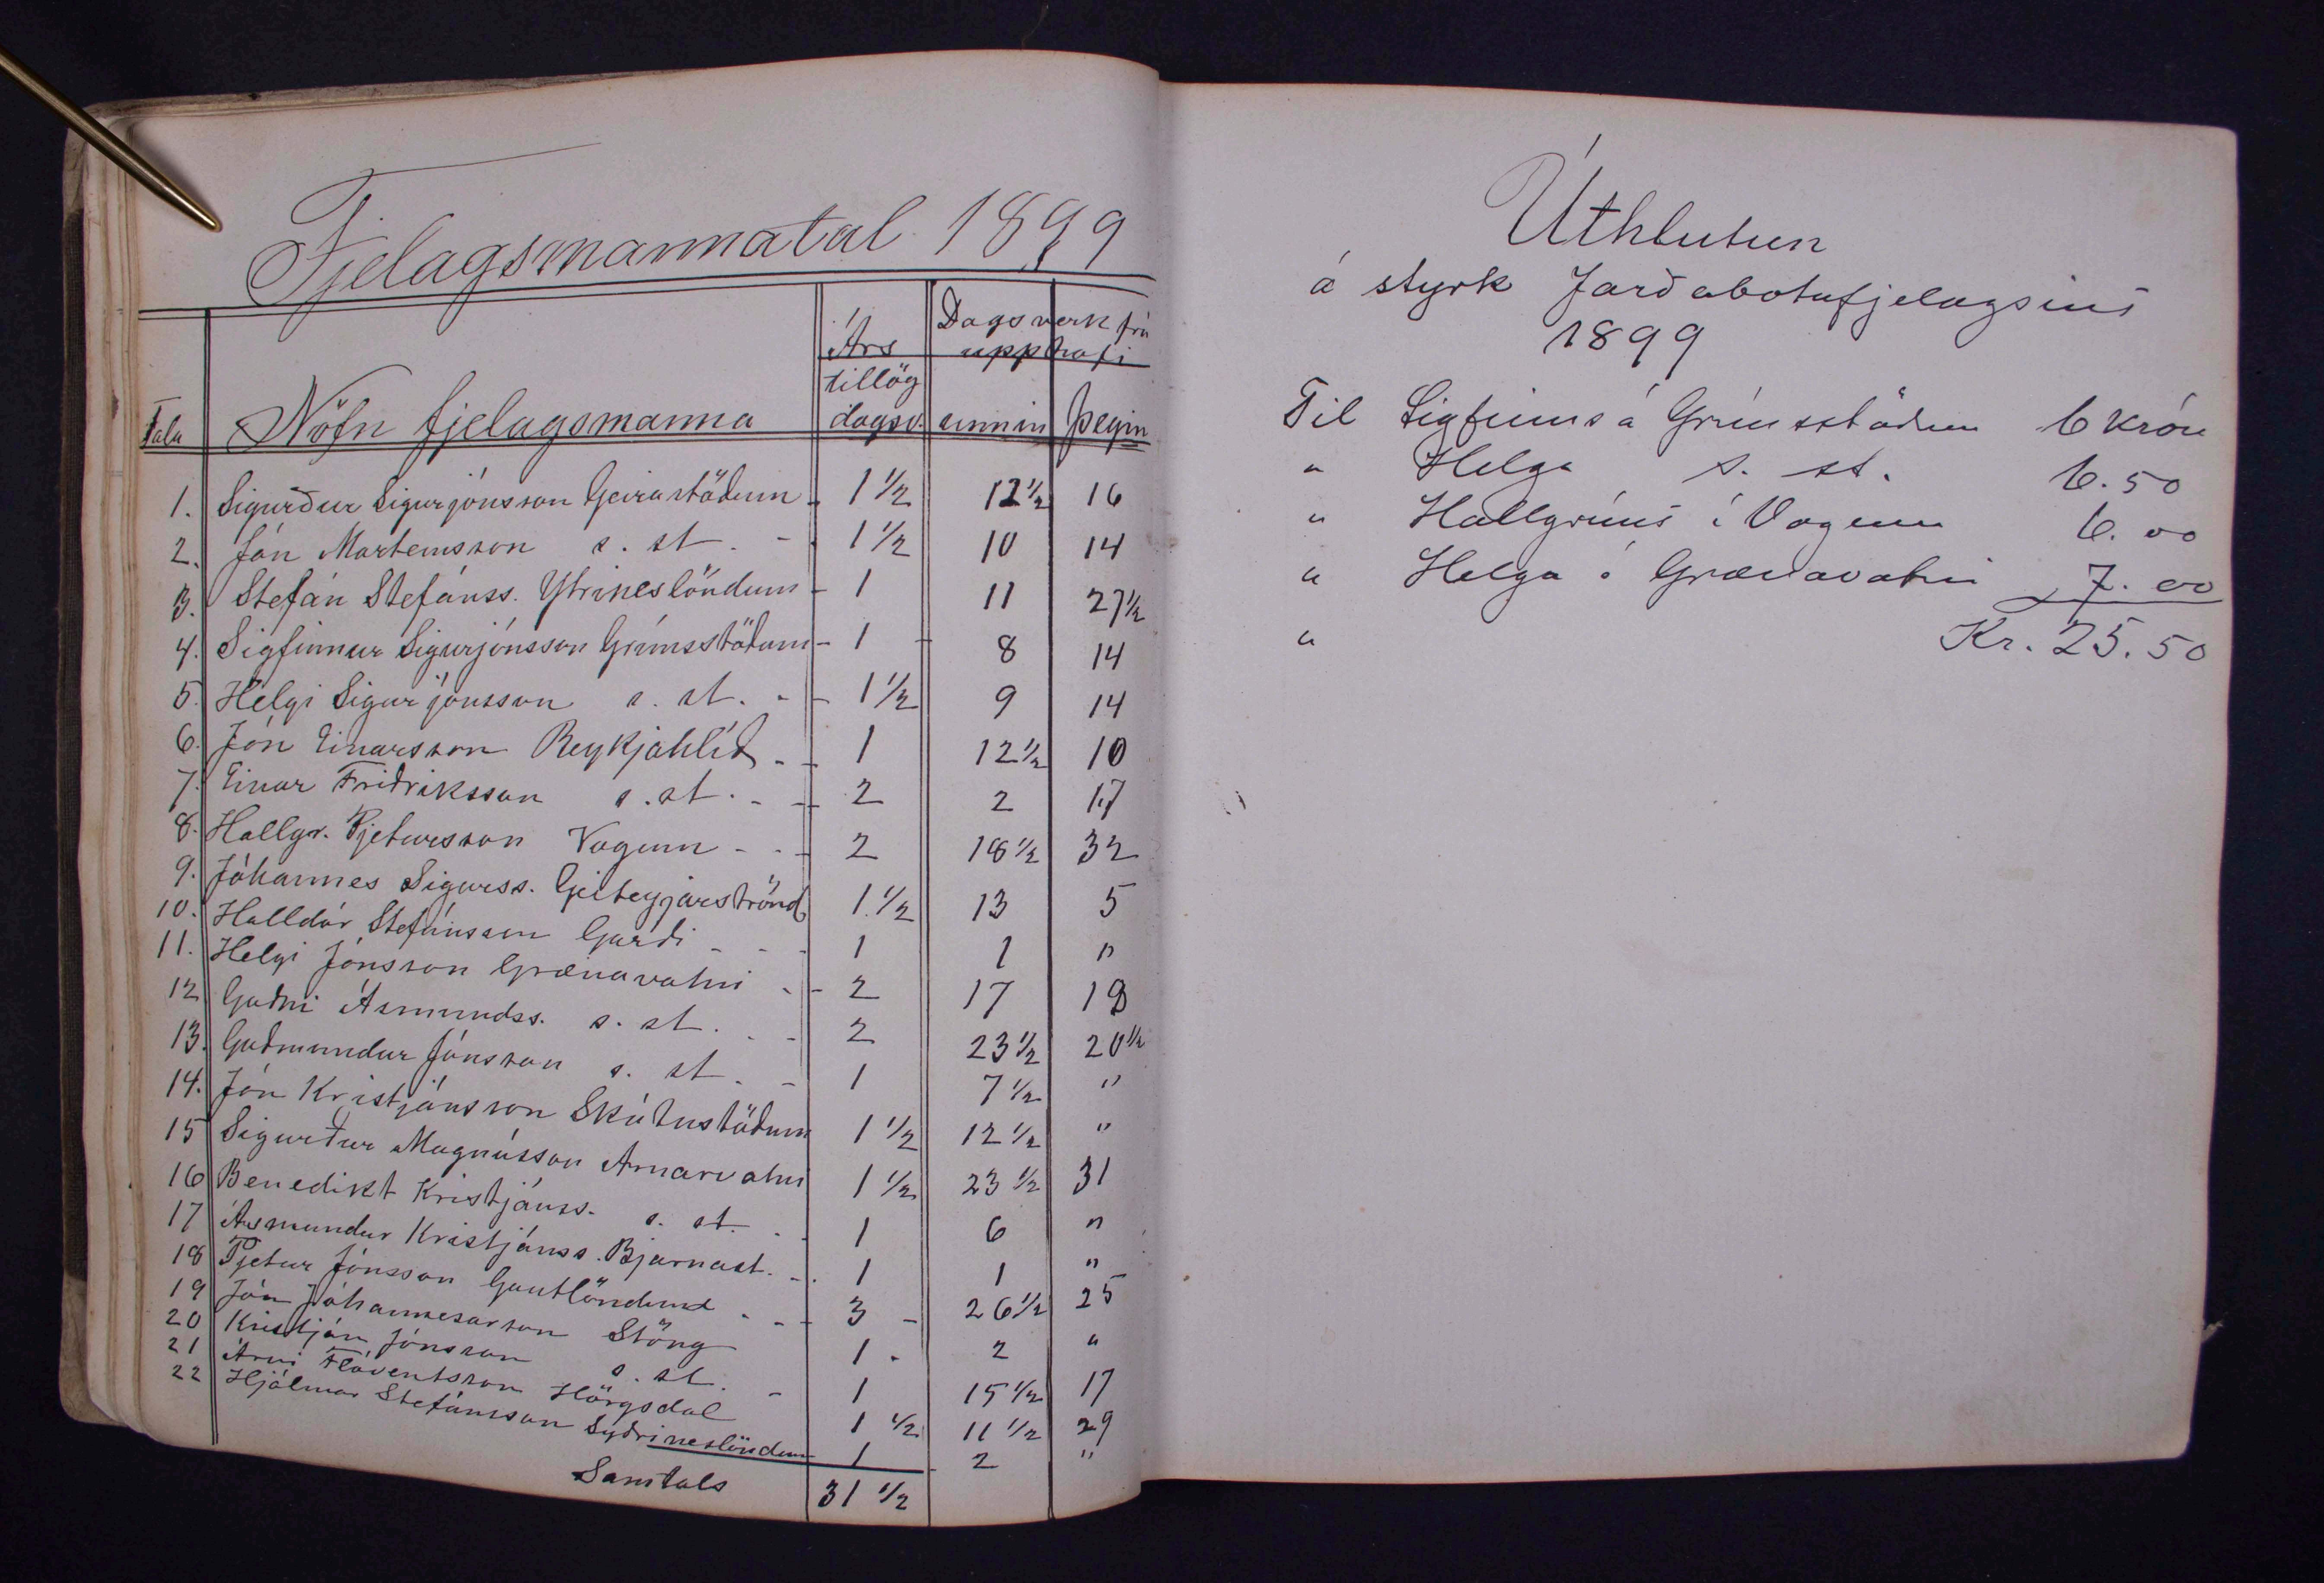 Fjelagsmannatal 1899
Tala Nöfn fjelagsmanna Árs tillög dagsv. Dagsverk frá upphafi unnin þegin
1. Sigurður Sigurjónsson Geirastöðum - 1 1/2 12 1/2 16
2. Jón Marteinsson s. st. - 1 1/2 10 14
3. Stefán Stefánss. Ytrineslöndum - 1 11 27 1/2
4. Sigfinnur Sigurjónsson Grímsstöðum - 1 - 8 14
5. Helgi Sigurjónsson s. st. - - 1 1/2 9 14
6. Jón Einarsson Reykjahlíð - - 1 12 1/2 10
7. Einar Friðriksson s. st. - - 2 2 17
8. Hallgr. Pjetursson Vogum - - 2 18 1/2 32
9. Jóhannes Sigurss. Geiteyjarströnd 1 1/2 13 5
10. Halldór Stefánsson Garði - - - 1 1 "
11. Helgi Jónsson Grænavatni - - 2 17 18
12 Guðni Ásmundss. s. st. - - 2 23 1/2 20 1/2
13. Guðmundur Jónsson s. st. - 1 7 1/2 "
14. Jón Kristjánsson Skútustöðum 1 1/2 12 1/2 "
15 Sigurður Magnússon Arnarvatni 1 1/2 23 1/2 31
16 Benedikt Kristjánss. s. st. - - 1 6 "
17 Ásmundur Kristjánss. Bjarnast. - 1 1 "
18 Pjetur Jónsson Gautlöndum - - - 3 - 26 1/2 25
19 Jón Jóhannesarson Stöng 1 - 2 "
20 Kristján Jónsson s. st. - 1 15 1/2 17
21 Árni Flóventsson Hörgsdal 1 1/2 11 1/2 29
22 Hjálmar Stefánsson Syðrineslöndum 1 - 2 "
Samtals 31 1/2
Úthlutun
á styrk Jarðabotafjelagsins
1899
Til Sigfinns á Grímsstöðum 6 krón
" Helga s. st. 6.50
" Hallgríms í Vogum 6.00
" Helga á Grænavatni 7.00
" Kr. 25.50